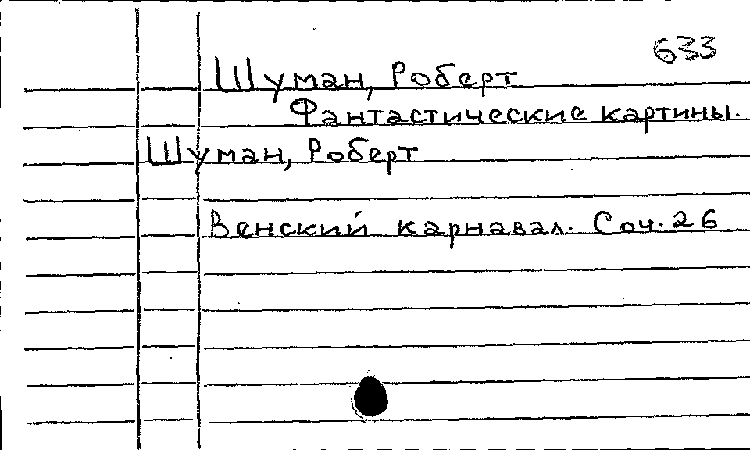 633
Шуман, Роберт
Фантастические картины.
Шуман, Роберт
Венский карнавал. Соч. 26